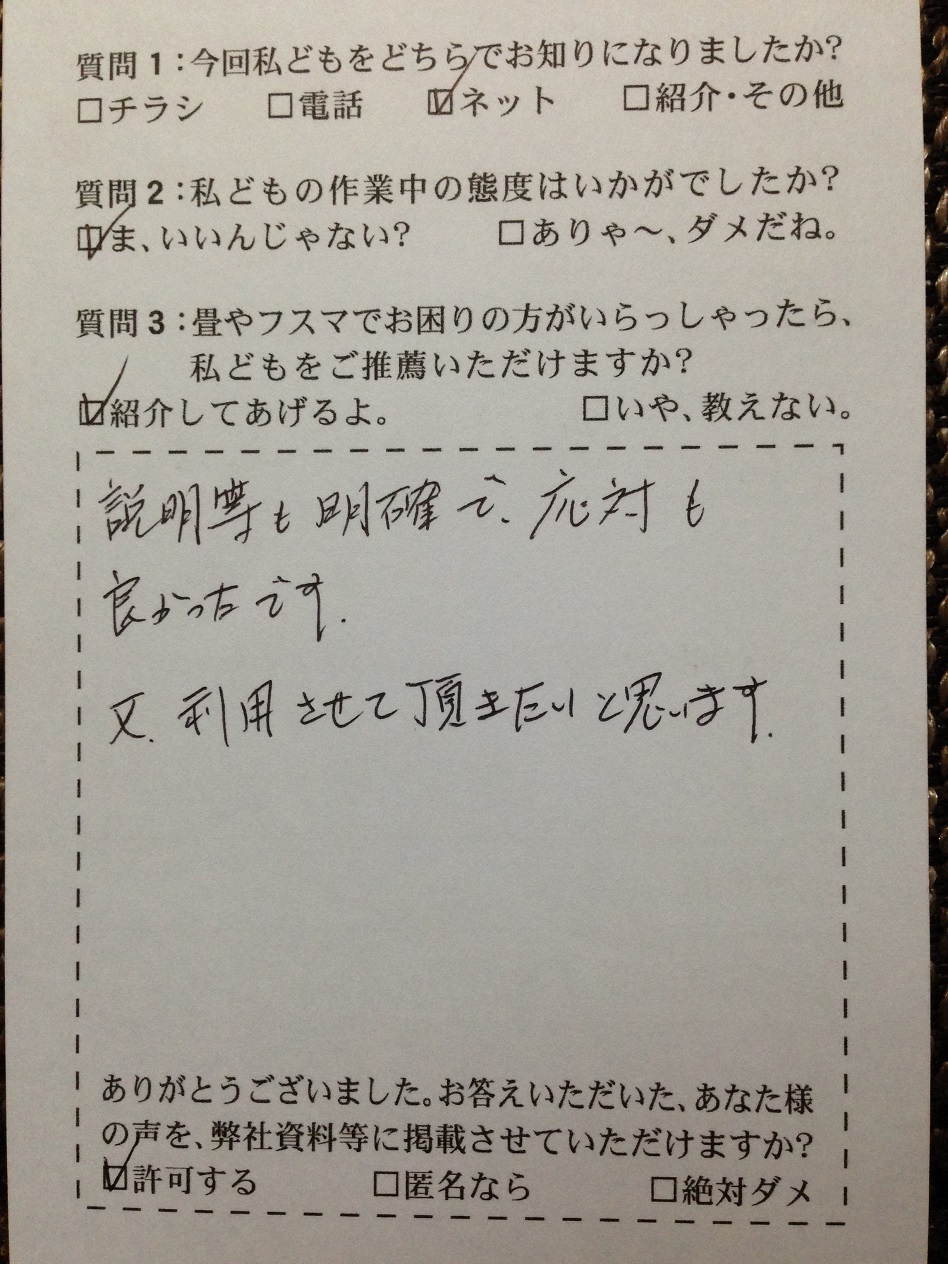 質問1:今回私どもをどちらでお知りになりましたか?
□チラシ □電話 ☑ネット □紹介・その他
質問2:私どもの作業中の態度はいかがでしたか?
☑ま、いいんじゃない? □ありゃ〜、ダメだね。
質問3:畳やフスマでお困りの方がいらっしゃったら、
私どもをご推薦いただけますか?
☑紹介してあげるよ。 □いや、教えない。
説明等も明確で、応対も
良かったです.
又、利用させて頂きたいと思います.
ありがとうございました。お答えいただいた、あなた様
の声を、弊社資料等に掲載させていただけますか?
☑許可する □匿名なら □絶対ダメ